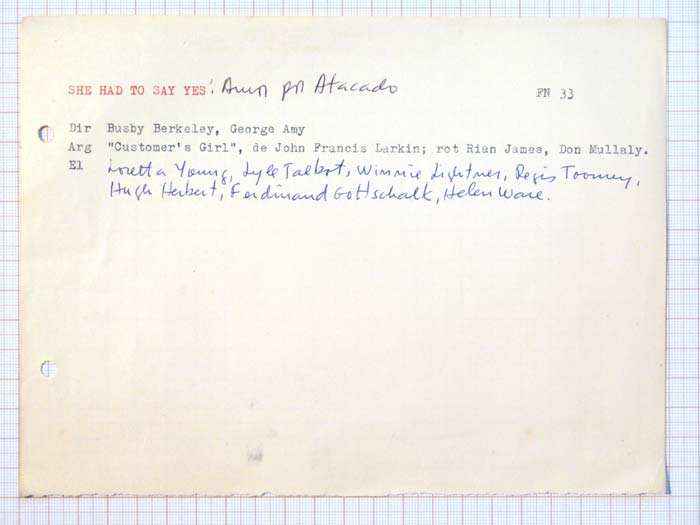 SHE HAD TO SAY YES: Amor por Atacado FN 33
Dir Busby Berkeley, George Amy
Arg "Customer's Girl", de John Francis Larkin; rot Rian James, Don Mullaly.
El Loretta Young, Lyle Talbot, Winnie Lightner, Regis Toomey,
Hugh Herbert, Ferdinand Gottschalk, Helen Ware.